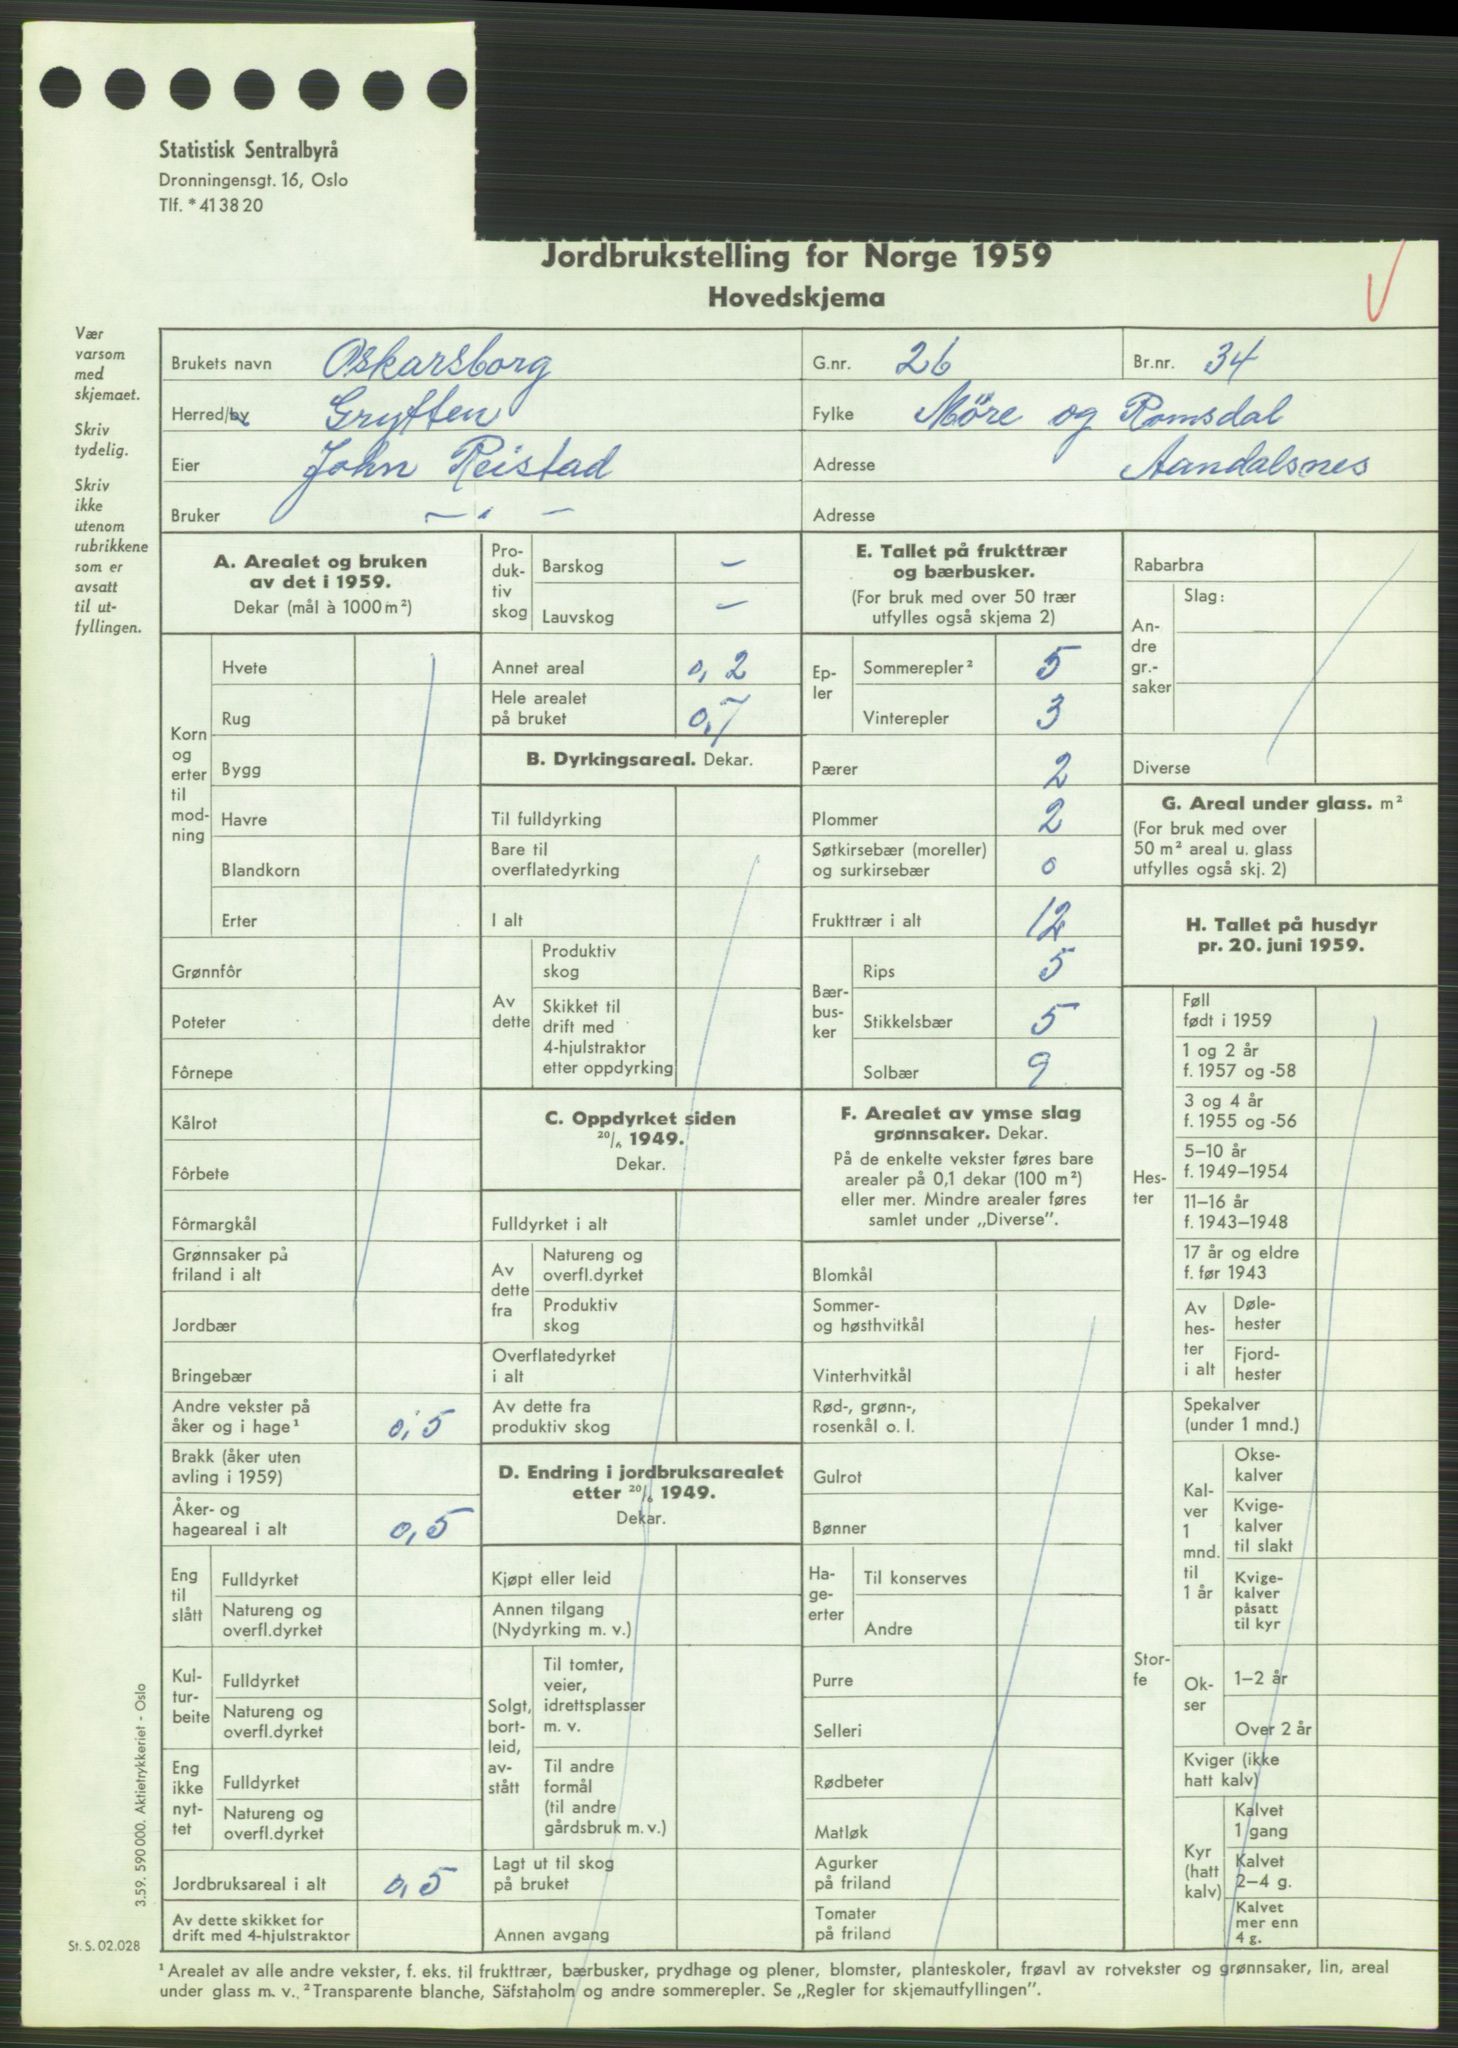 Statistisk Sentralbyrå
Dronningensgt. 16, Oslo
Tlf. *41 38 20
Jordbrukstelling for Norge 1959
Hovedskjema
Vær
varsom
med
skjemaet.
Skriv
tydelig.
Skriv
ikke
utenom
rubrikkene
som er
avsatt
til ut-
fyllingen.
Brukets navn Oskarsborg G.nr. 26 Br.nr. 34
Herred/by Grytten Fylke Möre og Romsdal
Eier John Reistad Adresse Aandalsnes
Bruker — . — Adresse
A. Arealet og bruken
av det i 1959.
Dekar (mål à 1000 m²)
Korn
og
erter
til
mod-
ning
Hvete
Rug
Bygg
Havre
Blandkorn
Erter
Grønnfôr
Poteter
Fôrnepe
Kålrot
Fôrbete
Fôrmargkål
Grønnsaker på
friland i alt
Jordbær
Bringebær
Andre vekster på
åker og i hage¹ 0,5
Brakk (åker uten
avling i 1959)
Åker- og
hageareal i alt 0,5
Eng
til
slått
Fulldyrket
Natureng og
overfl.dyrket
Kul-
tur-
beite
Fulldyrket
Natureng og
overfl.dyrket
Eng
ikke
nyt-
tet
Fulldyrket
Natureng og
overfl.dyrket
Jordbruksareal i alt 0,5
Av dette skikket for
drift med 4-hjulstraktor
Pro-
duk-
tiv
skog
Barskog —
Lauvskog —
Annet areal 0,2
Hele arealet
på bruket 0,7
B. Dyrkingsareal. Dekar.
Til fulldyrking
Bare til
overflatedyrking
I alt
Av
dette
Produktiv
skog
Skikket til
drift med
4-hjulstraktor
etter oppdyrking
C. Oppdyrket siden
20/6 1949.
Dekar.
Fulldyrket i alt
Av
dette
fra
Natureng og
overfl.dyrket
Produktiv
skog
Overflatedyrket
i alt
Av dette fra
produktiv skog
D. Endring i jordbruksarealet
etter 20/6 1949.
Dekar.
Kjøpt eller leid
Annen tilgang
(Nydyrking m. v.)
Solgt,
bort-
leid,
av-
stått
Til tomter,
veier,
idrettsplasser
m. v.
Til andre
formål
(til andre
gårdsbruk m. v.)
Lagt ut til skog
på bruket
Annen avgang
E. Tallet på frukttrær
og bærbusker.
(For bruk med over 50 trær
utfylles også skjema 2)
Ep-
ler
Sommerepler² 5
Vinterepler 3
Pærer 2
Plommer 2
Søtkirsebær (moreller)
og surkirsebær 0
Frukttrær i alt 12
Bær-
bus-
ker
Rips 5
Stikkelsbær 5
Solbær 9
F. Arealet av ymse slag
grønnsaker. Dekar.
På de enkelte vekster føres bare
arealer på 0,1 dekar (100 m²)
eller mer. Mindre arealer føres
samlet under „Diverse”.
Blomkål
Sommer-
og høsthvitkål
Vinterhvitkål
Rød-, grønn-,
rosenkål o. l.
Gulrot
Bønner
Ha-
ge-
erter
Til konserves
Andre
Purre
Selleri
Rødbeter
Matløk
Agurker
på friland
Tomater
på friland
Rabarbra
An-
dre
gr.-
saker
Slag:
Diverse
G. Areal under glass. m²
(For bruk med over
50 m² areal u. glass
utfylles også skj. 2)
H. Tallet på husdyr
pr. 20. juni 1959.
Hes-
ter
Føll
født i 1959
1 og 2 år
f. 1957 og -58
3 og 4 år
f. 1955 og -56
5–10 år
f. 1949–1954
11–16 år
f. 1943–1948
17 år og eldre
f. før 1943
Av
hes-
ter
i alt
Døle-
hester
Fjord-
hester
Stor-
fe
Spekalver
(under 1 mnd.)
Kal-
ver
1
mnd.
til
1 år
Okse-
kalver
Kvige-
kalver
til slakt
Kvige-
kalver
påsatt
til kyr
Ok-
ser
1–2 år
Over 2 år
Kviger (ikke
hatt kalv)
Kyr
(hatt
kalv)
Kalvet
1 gang
Kalvet
2–4 g.
Kalvet
mer enn
4 g.
3.59. 590 000. Aktietrykkeriet - Oslo
St. S. 02.028
¹ Arealet av alle andre vekster, f. eks. til frukttrær, bærbusker, prydhage og plener, blomster, planteskoler, frøavl av rotvekster og grønnsaker, lin, areal
under glass m. v. ² Transparente blanche, Säfstaholm og andre sommerepler. Se „Regler for skjemautfyllingen”.